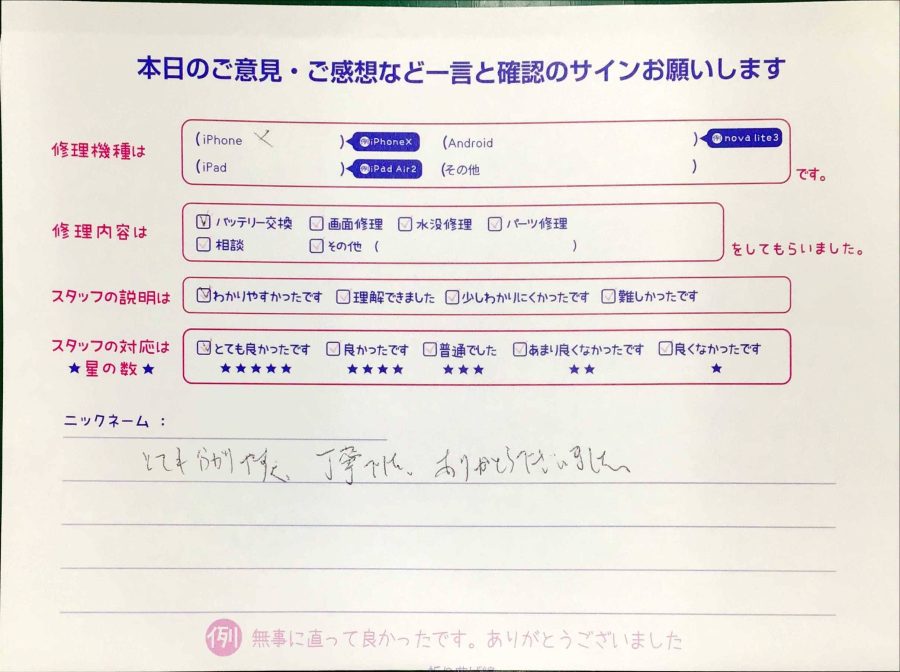 本日のご意見・ご感想など一言と確認のサインお願いします
修理機種は
(iPhone X ) 例 iPhoneX (Android ) 例 nova lite3
(iPad ) 例 iPad Air2 (その他 ) です。
修理内容は
バッテリー交換 画面修理 水没修理 パーツ修理
相談 その他 ( ) をしてもらいました。
スタッフの説明は わかりやすかったです 理解できました 少しわかりにくかったです 難しかったです
スタッフの対応は とても良かったです 良かったです 普通でした あまり良くなかったです 良くなかったです
★星の数★ ★★★★★ ★★★★ ★★★ ★★ ★
ニックネーム：
とても分かりやすく、丁寧でした。ありがとうございました。
例 無事に直って良かったです。ありがとうございました